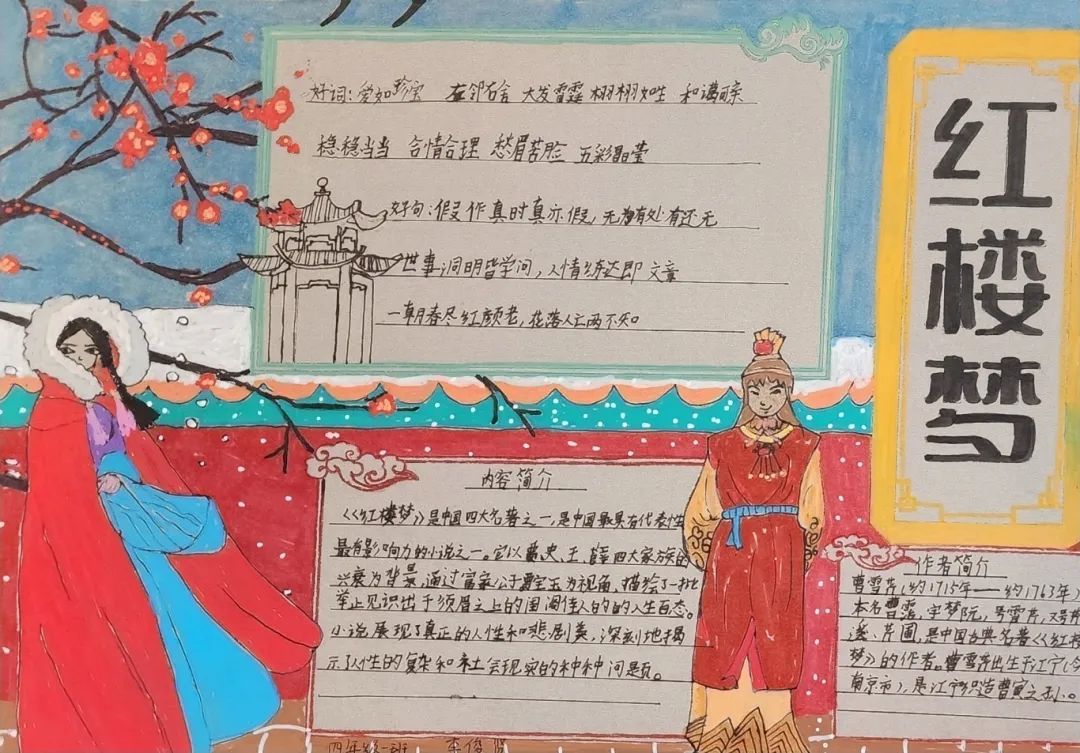 红楼梦
好词：爱如珍宝 左邻右舍 大发雷霆 栩栩如生 和蔼可亲
稳稳当当 合情合理 愁眉苦脸 五彩晶莹
好句：假作真时真亦假，无为有处有还无
世事洞明皆学问，人情练达即文章
一朝春尽红颜老，花落人亡两不知。
内容简介
《红楼梦》是中国四大名著之一，是中国最具有代表性
最有影响力的小说之一。它以贾、史、王、薛四大家族的
兴衰为背景，通过富家公子贾宝玉为视角，描绘了一批
举止见识出于须眉之上的闺阁佳人的的人生百态。
小说展现了真正的人性和悲剧美，深刻地揭
示了人性的复杂和社会现实的种种问题。
作者简介
曹雪芹（约1715年——约1763年）
本名曹霑，字梦阮，号雪芹，又号芹
溪、芹圃，是中国古典名著《红楼
梦》的作者。曹雪芹出生于江宁（今
南京市），是江宁织造曹寅之孙。
四年级一班 李俊